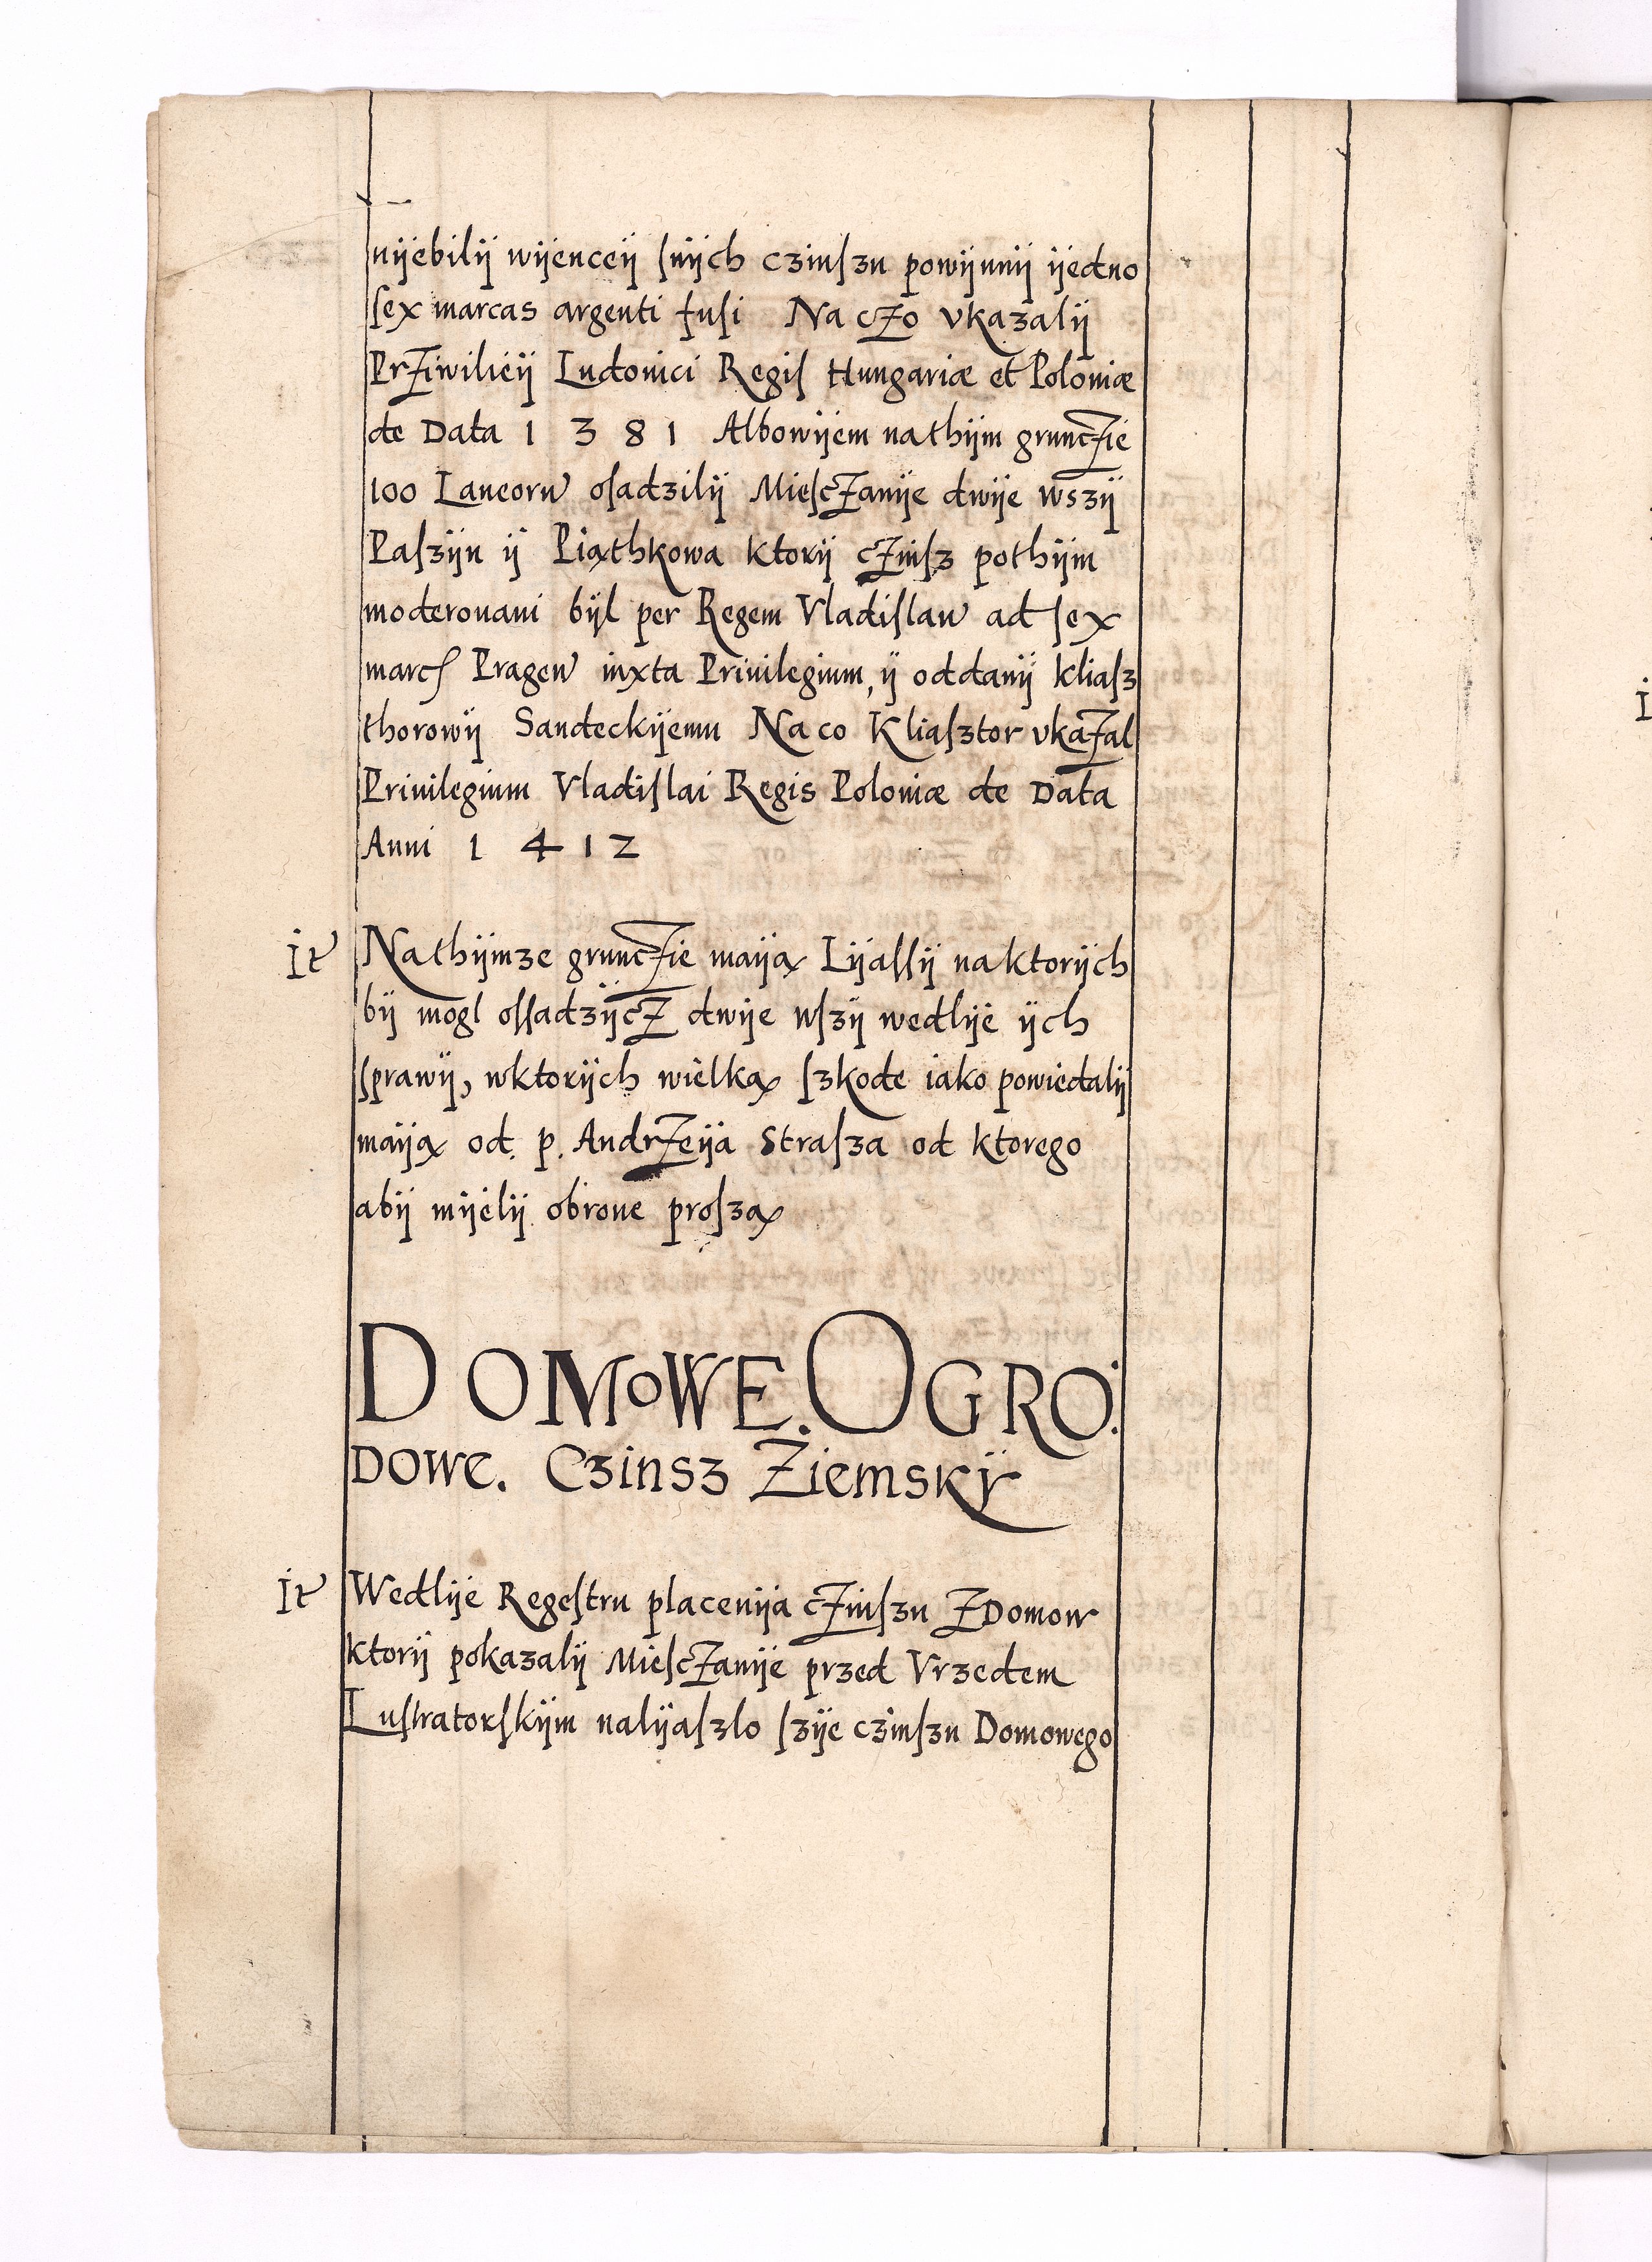 nÿebilÿ wÿenceÿ ſnÿch czinſzu powÿnnÿ ÿedno
ſex marcas argenti fuſi Na czo vkazalÿ
Prziwilieÿ Ludouici Regiſ Hungariæ et Poloniæ
de Data 1 3 8 1 Albowÿem na thÿm grunczie
100 Laneoru oſadzilÿ Mieſczanÿe dwÿe wszÿ
Paſzÿn ÿ Piąthkowa ktorÿ czinſz pothÿm
moderouani bÿl per Regem Vladiſlau ad ſex
marcſ Pragen iuxta Priuilegium, ÿ oddanÿ kliaſz
thorowÿ Sandeckÿemu Na co Kliaſztor vkazal
Priuilegium Vladiſlai Regis Poloniæ de Data
Anni 1 4 1 2
It Na thÿmze grunczie maÿą Lÿaſſÿ na ktorÿch
bÿ mogl oſſadzÿcz dwÿe wſzÿ wedlÿe ÿch
ſprawÿ, wktorÿch wielką ſzkode iako powiedalÿ
maÿą od. p. Andrzeÿa Straſza od ktorego
abÿ mÿelÿ obrone proſzą
DOMOWE. OGRO:
DOWE. Czinsz Ziemskÿ
It Wedlÿe Regeſtru placenÿa czinſzu Z Domow
ktorÿ pokazalÿ Mieſczanÿe przed Vrzedem
Luſtratorſkÿm nalÿaſzlo ſzÿe czinſzu Domowego